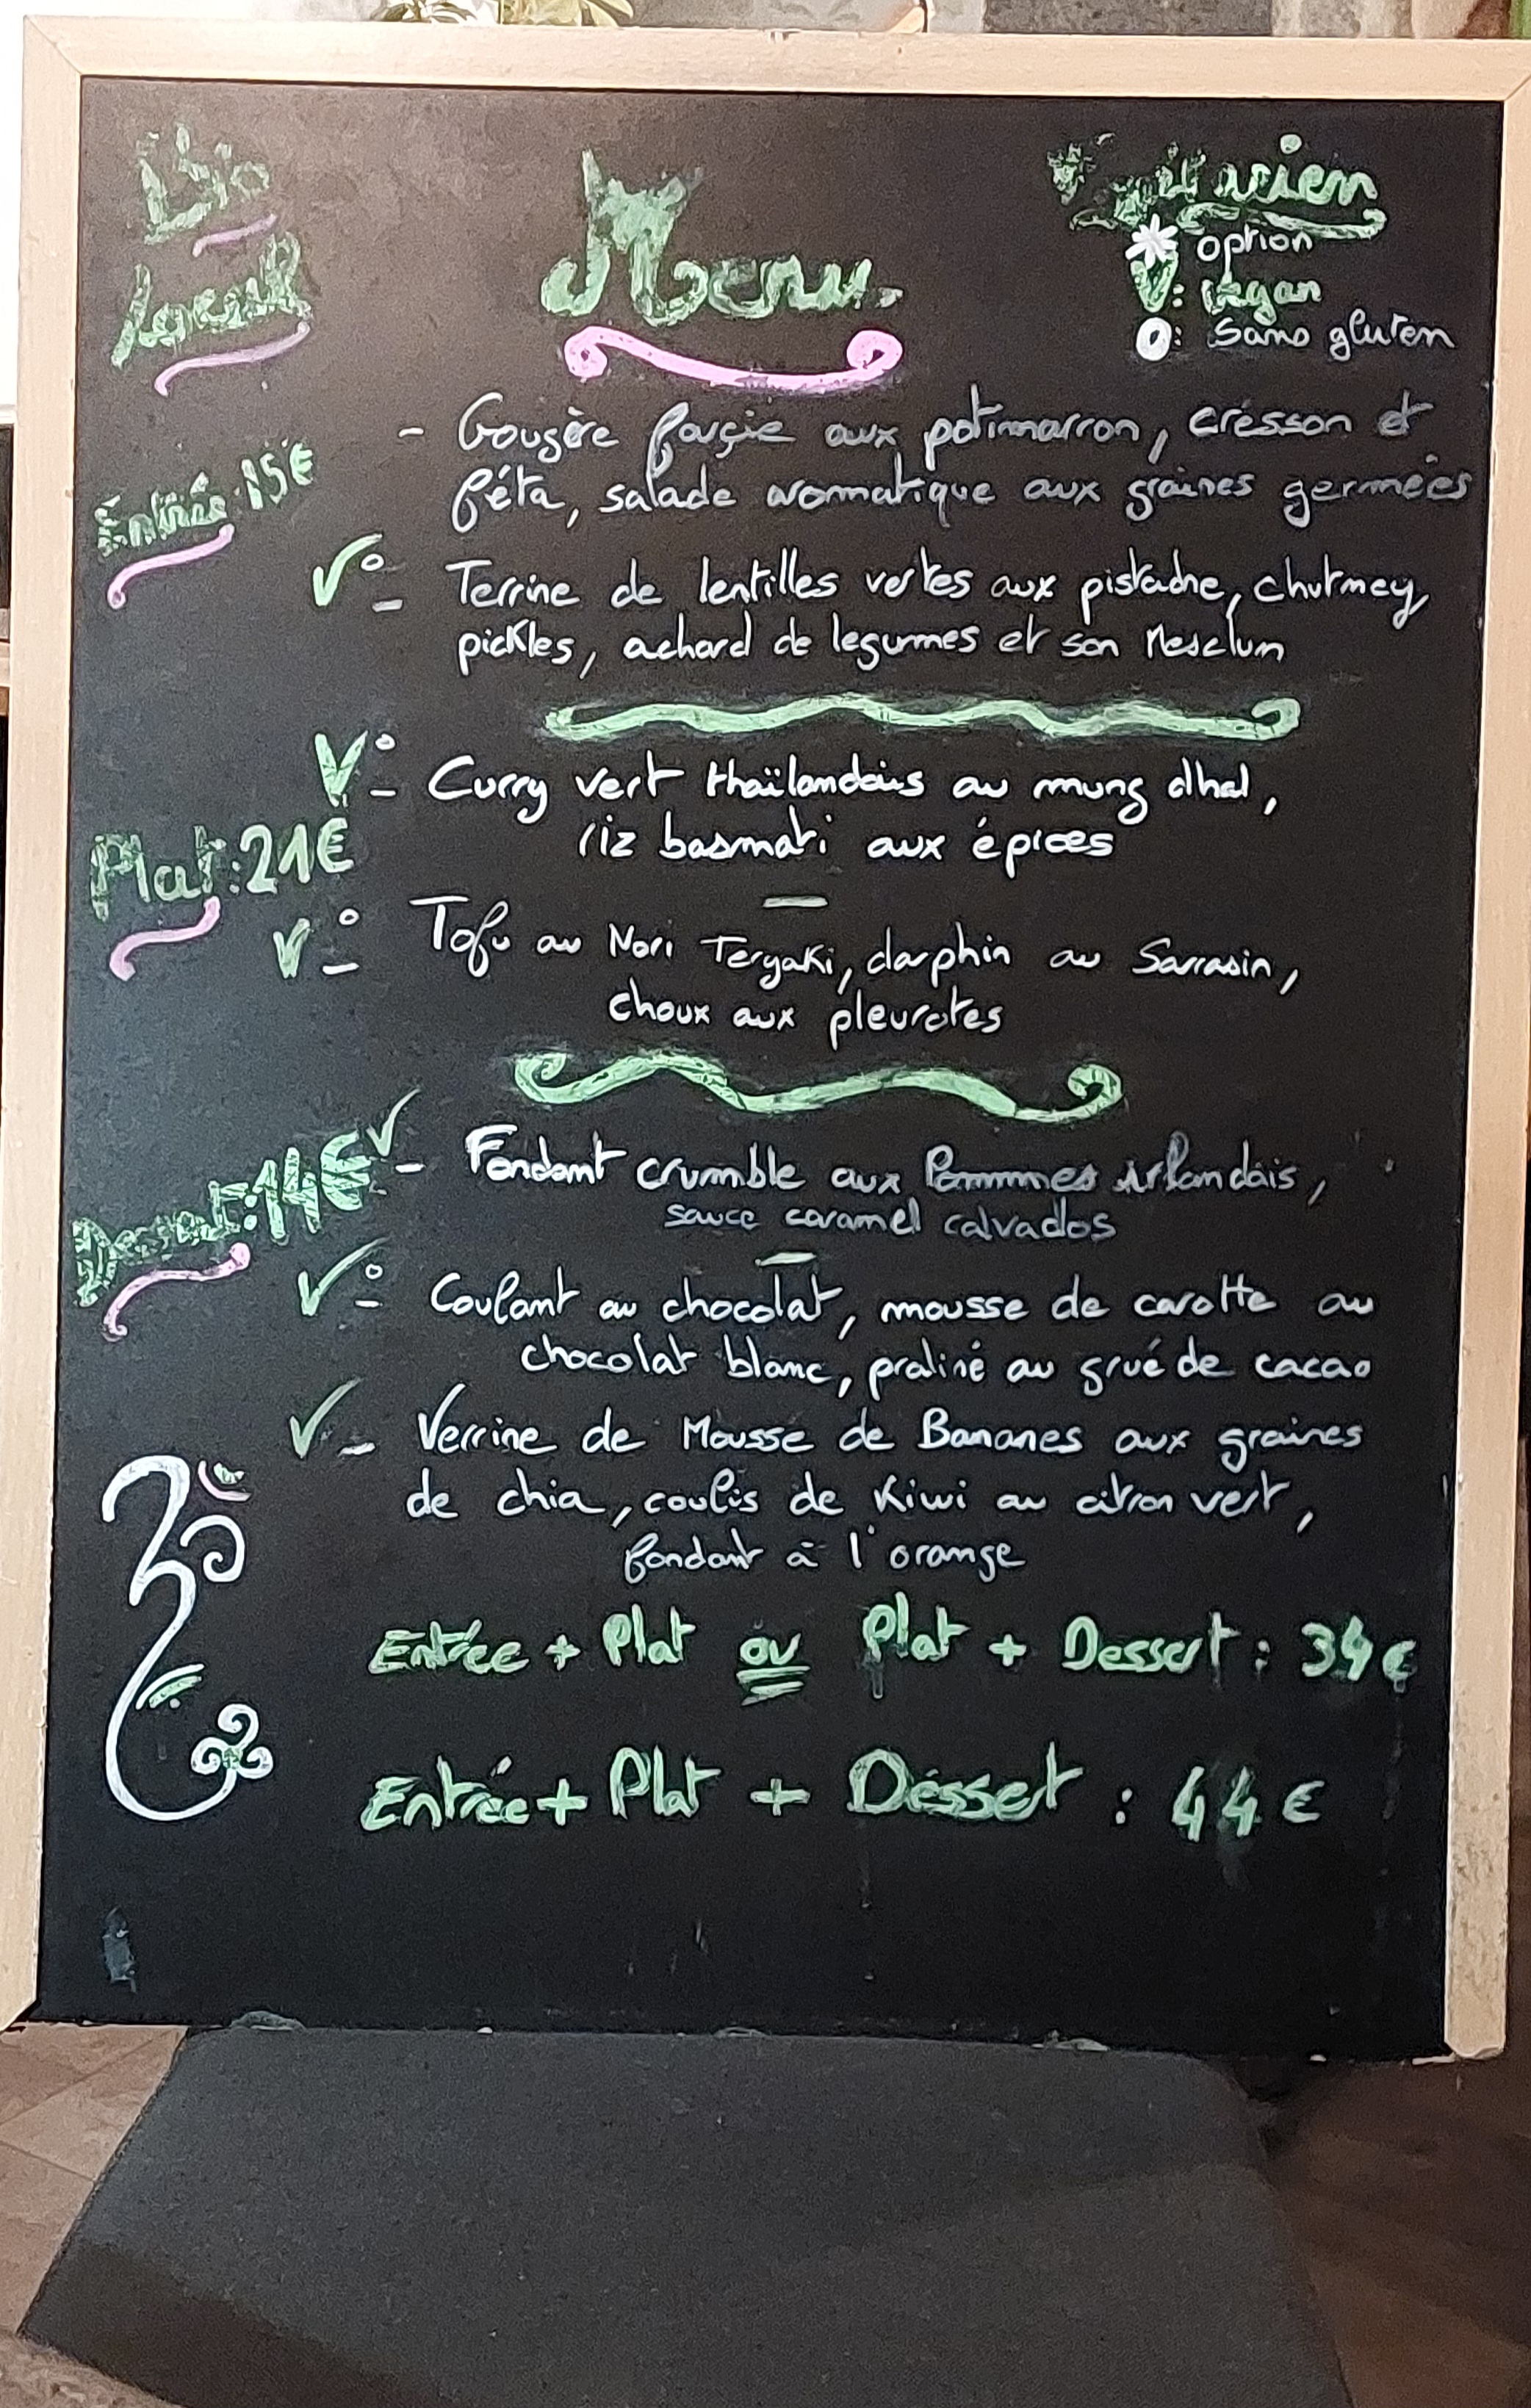 Bio
Local
Menu.
Végétarien
* option
V: Vegan
o: Sans gluten
Entrée: 15€
- Gougère farçie aux potimarron, crésson et
féta, salade aromatique aux graines germées
V° - Terrine de lentilles vertes aux pistache, chutney,
pickles, achard de legumes et son Mesclun
Plat: 21€
V° - Curry vert thaïlandais au mung dhal,
riz basmati aux épices
V° - Tofu au Nori Teryaki, darphin au Sarrasin,
choux aux pleurotes
Dessert: 14€
V - Fondant crumble aux Pommes irlandais,
sauce caramel calvados
V° - Coulant au chocolat, mousse de carotte au
chocolat blanc, praliné au grué de cacao
V - Verrine de Mousse de Bananes aux graines
de chia, coulis de Kiwi au citron vert,
fondant à l'orange
Entrée + Plat ou Plat + Dessert : 34€
Entrée + Plat + Déssert : 44€